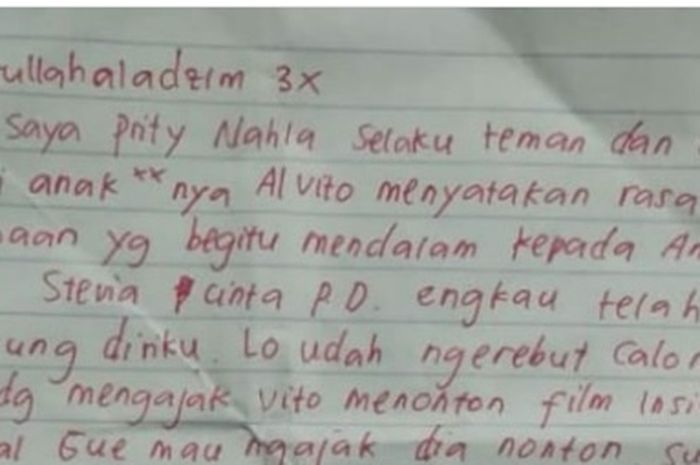 ullahaladzim 3x
Saya Prity Nahla selaku teman dan
anak xx nya Al Vito menyatakan rasa
aan yg begitu mendalam kepada An
Stevia cinta P.D. engkau telah
ung diriku. Lo udah ngerebut calon
dg mengajak vito menonton film Insi
al Gue mau ngajak dia nonton su